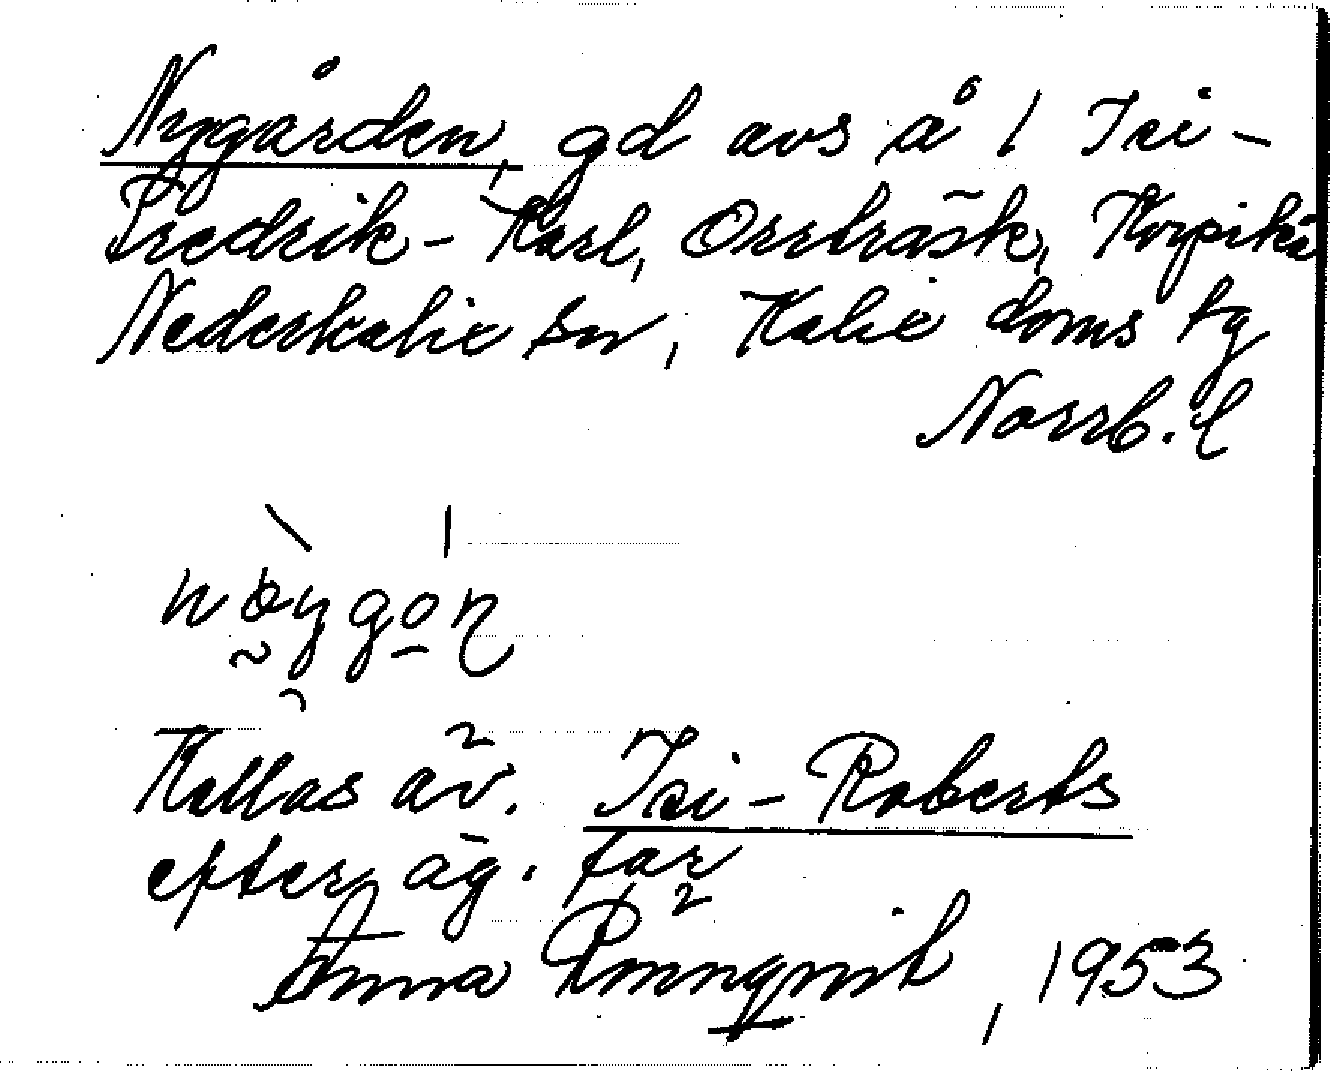 Nygården, gd avs å 1 Isi-
Fredrik-Karl, Orrbräsk, Korpikå
Nederkalix sn, Kalix doms tg
Norrb. l
Kallas äv. Isi-Roberts
efter äg. far
Anna Rönnqvist, 1953